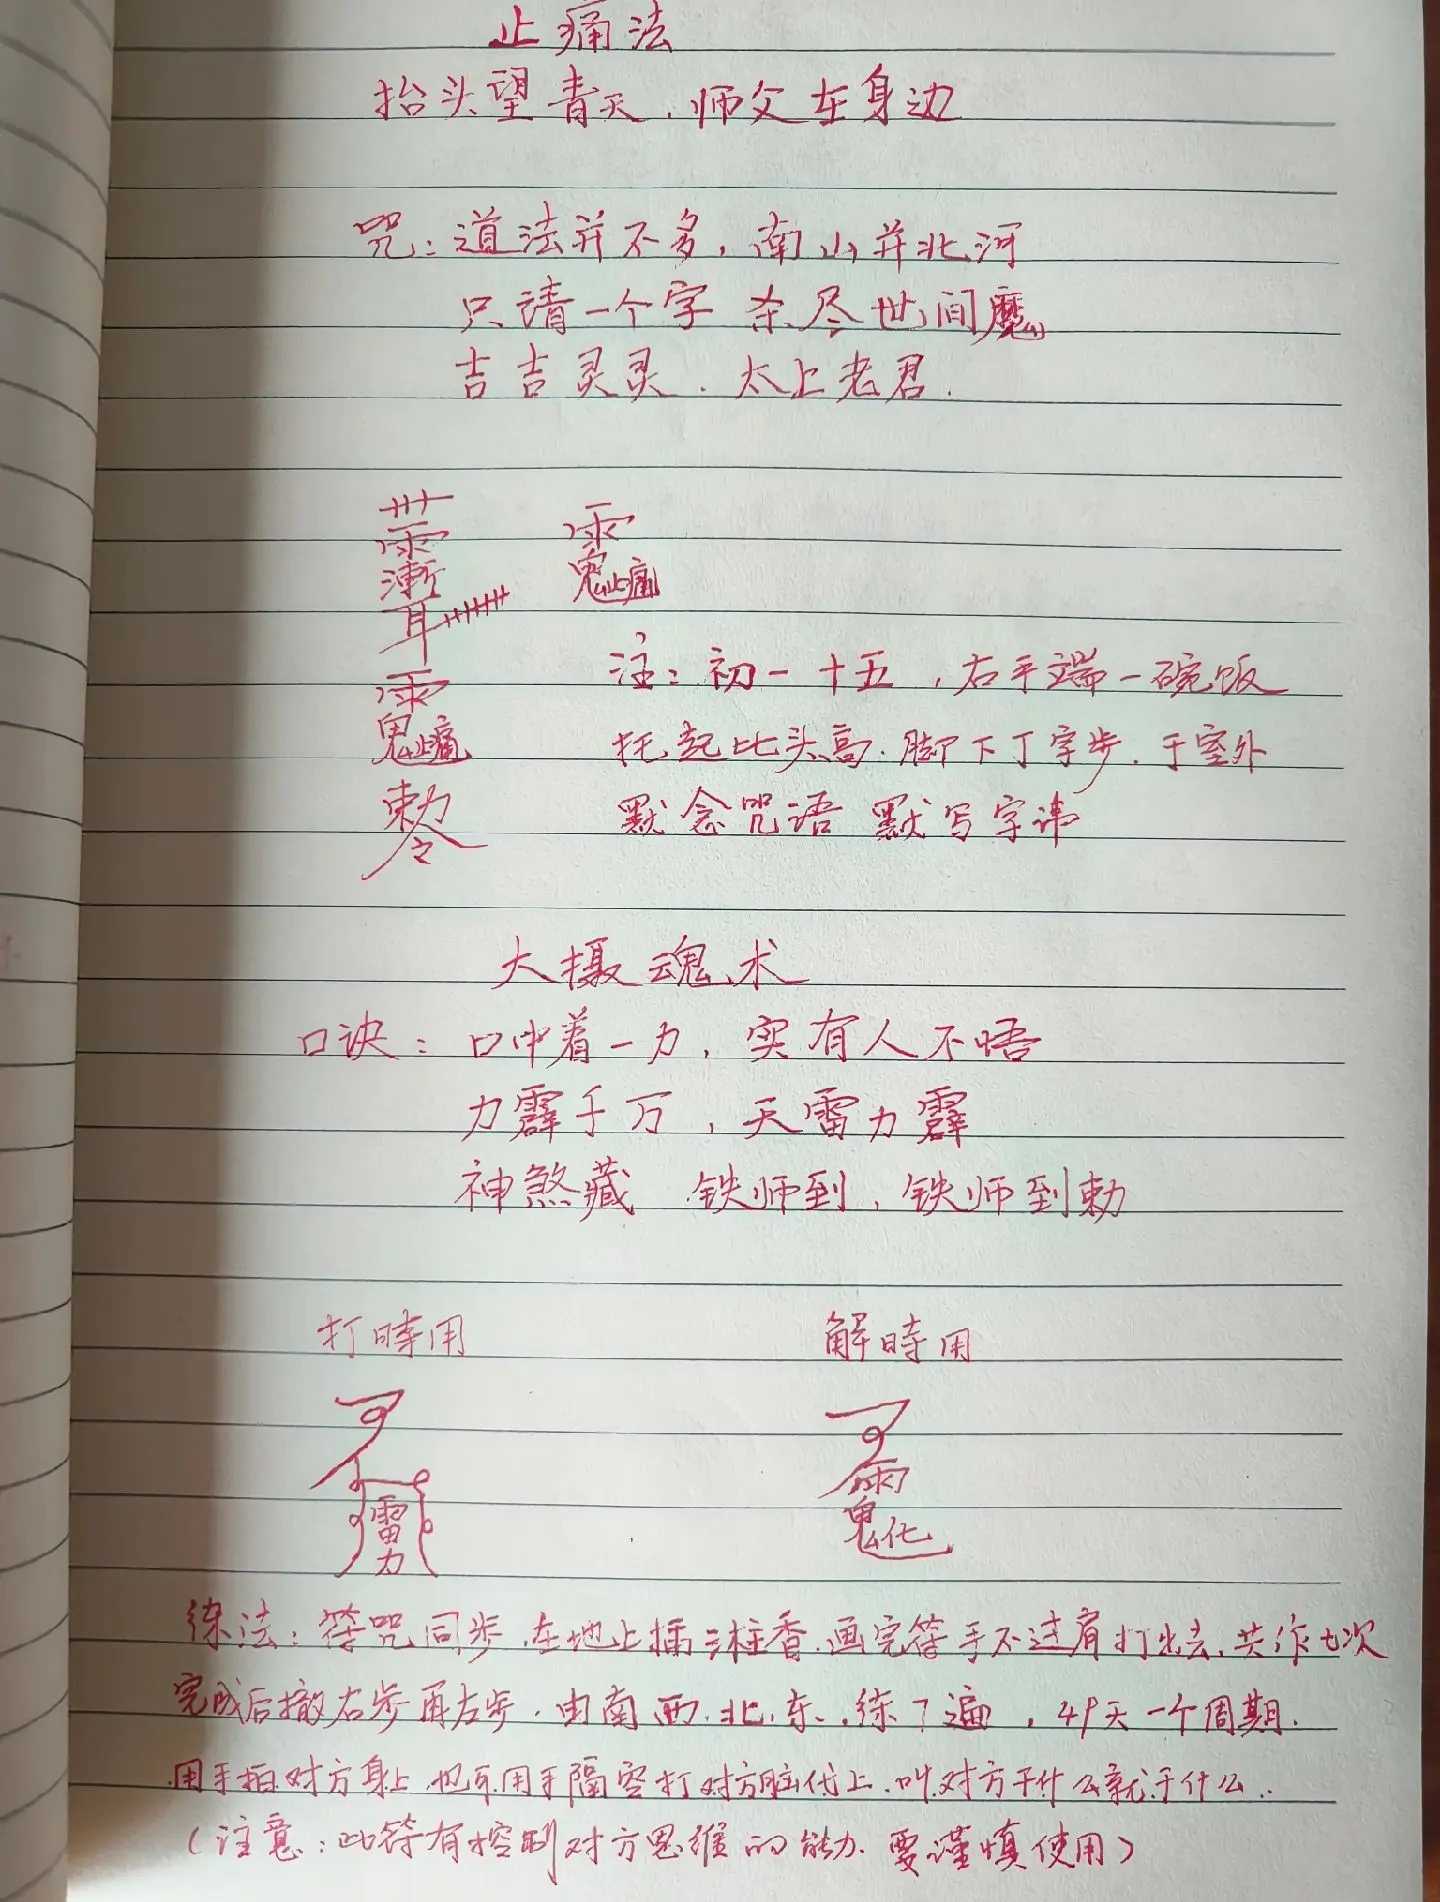 止痛法
抬头望青天.师父在身边
咒:道法并不多,南山并北河
只请一个字 杀尽世间魔
吉吉灵灵.太上老君.
注:初一十五,右手端一碗饭
托起比头高.脚下丁字步.于室外
默念咒语 默写字讳
大摄魂术
口诀:口中着一力,实有人不悟
力霹千万,天雷力霹
神煞藏 铁师到,铁师到勅
打時用 解時用
雷
力
练法:符咒同步.在地上插三柱香.画完符手不过肩打出去.共作七次
完成后撤右步再左步.由南.西.北.东.练7遍,49天一个周期.
用手拍对方身上.也可用手隔空打对方脑代上.叫对方干什么就干什么.
(注意:此符有控制对方思维的能力.要谨慎使用)